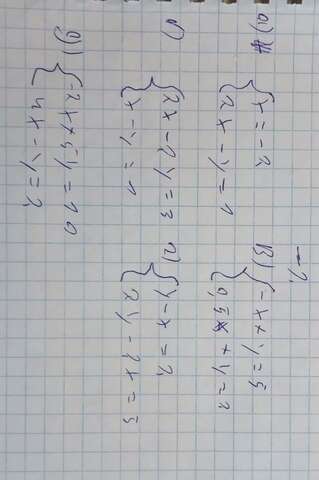 — 2.
а) { x = -2,
2x - y = 1
в) { -x + y = 5
0,5x + y = 2
б) { 2x - 2y = 3
x - y = 1
г) { y - x = 2,
2y - 2x = 5
д) { -2x + 5y = 10
4x - y = 2,